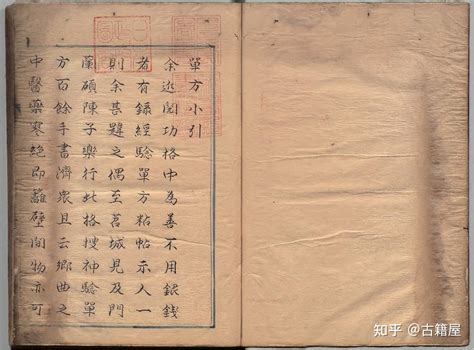 單方小引
余逊閱功格中為善不用銀錢
者有録經驗單方粘帖示人一
則余甚韙之偶至茗城見及門
蘭碩陳子樂行此格搜神驗單
方百餘手書濟眾且云鄉曲之
中醫藥寥絶即籬壁間物亦可
知乎 @古籍屋